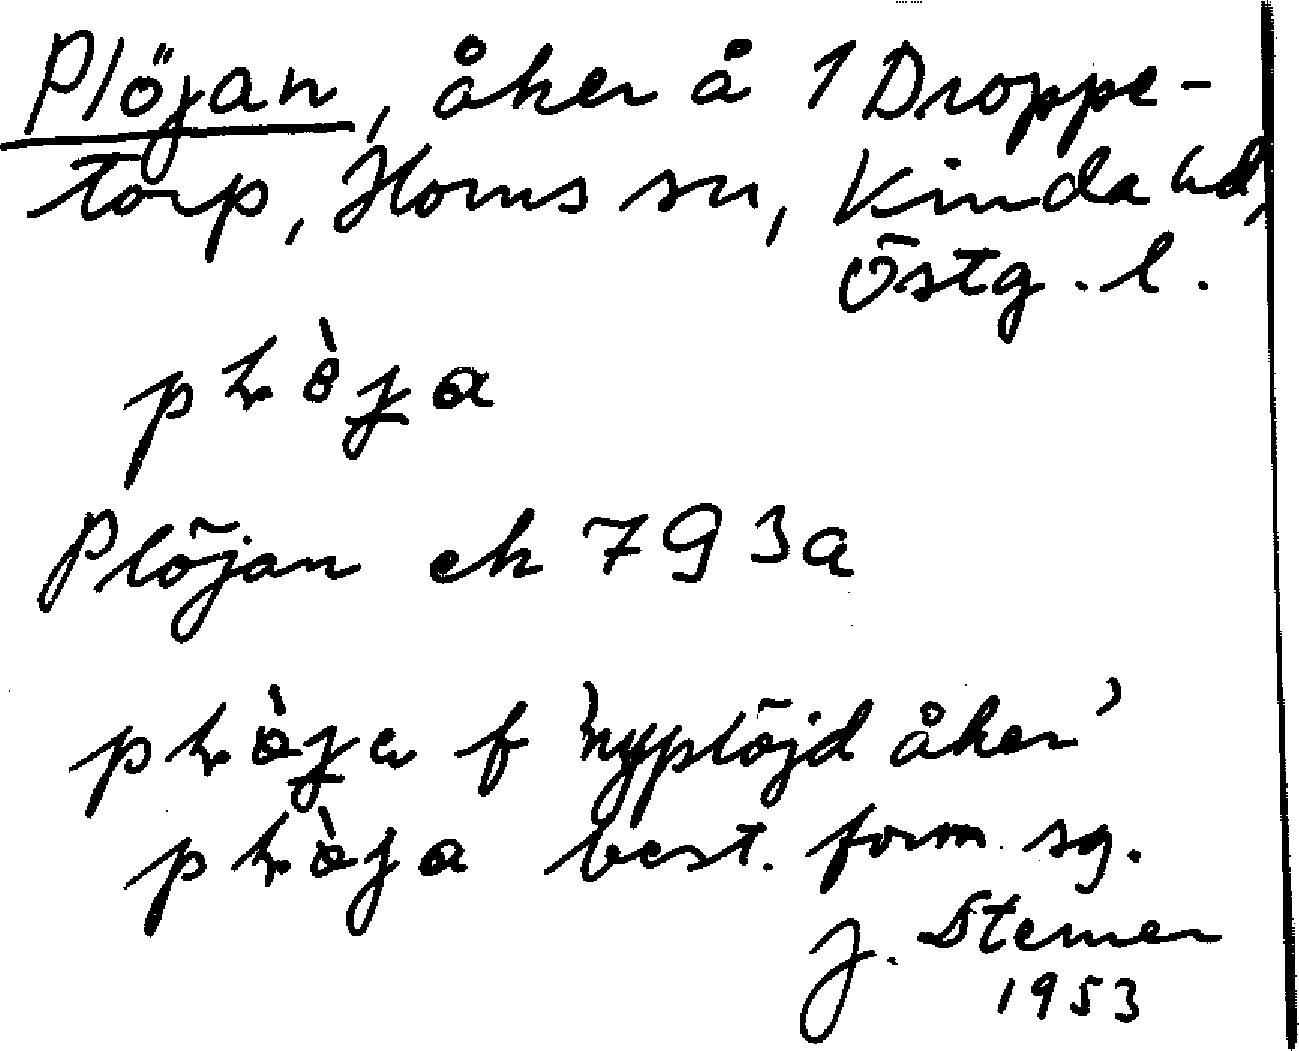 Plöjan, åker å 1 Droppe-
torp, Horns sn, Kinda hd,
Östg. l.
Plöjan ek 793a
f 'nyplöjd åker'
best. form sg.
J. Stemer
1953